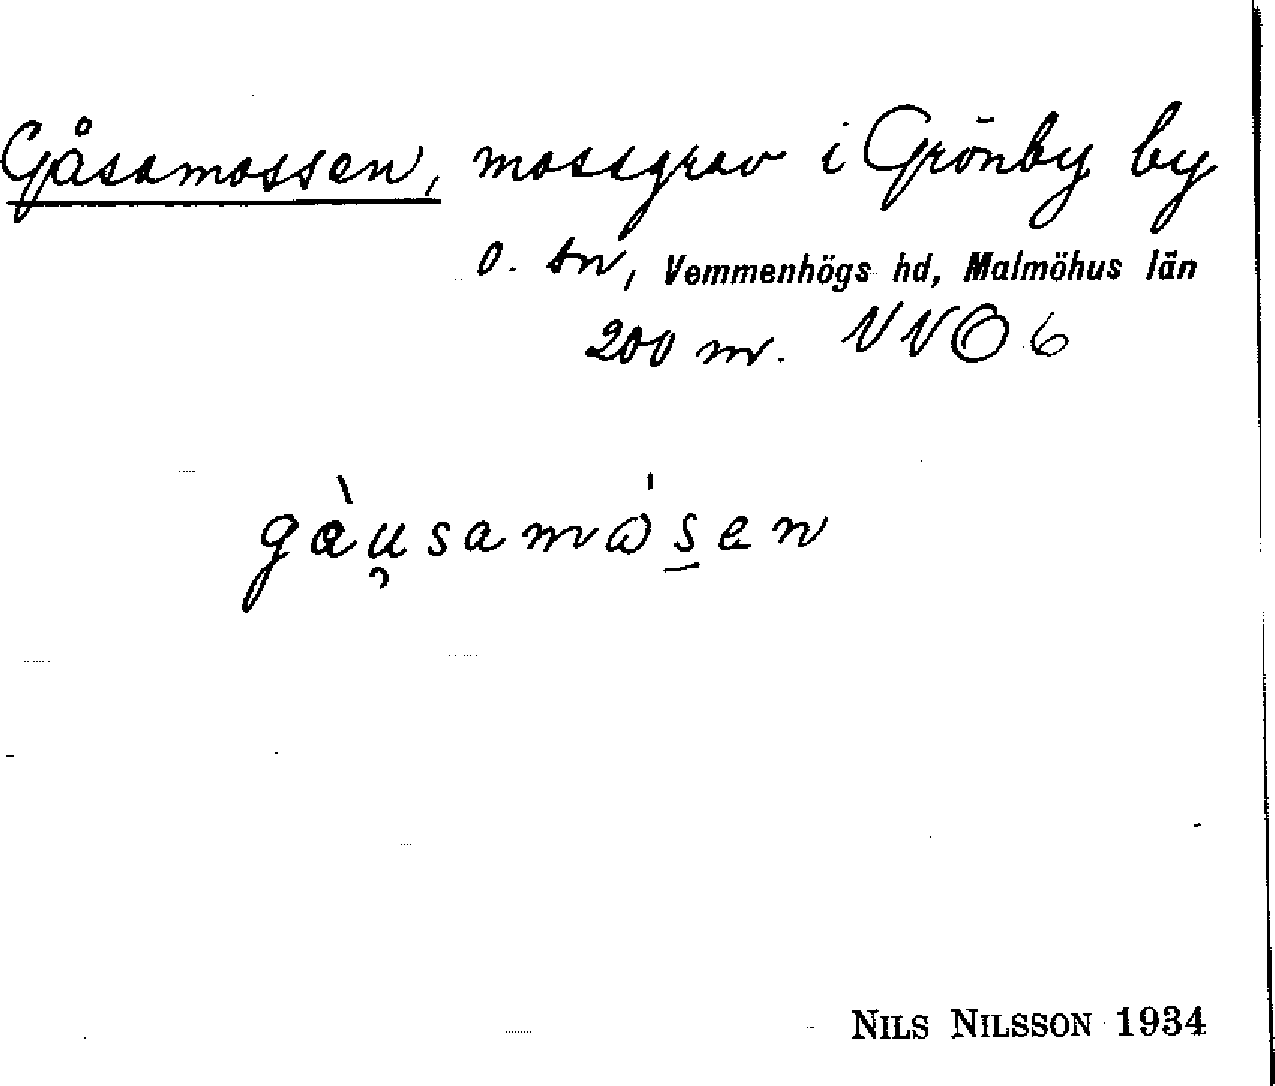 Gåsamossen, mossgrav i Grönby by
o. sn, Vemmenhögs hd, Malmöhus län
200 m. VNO 6
gàu̯samósen
NILS NILSSON 1934